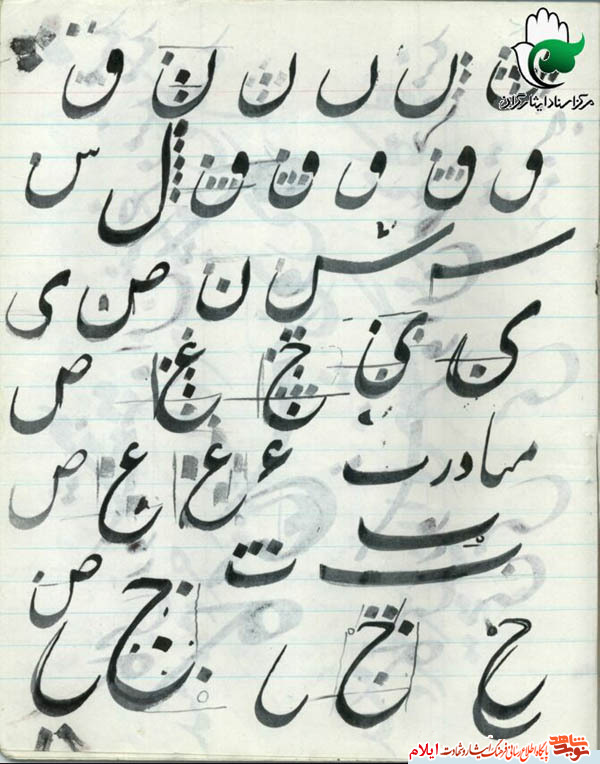 مرکز اسناد ایثارگران
ں ں ن ن ق
و و و و و ل س
س س ن ص ی
ی ی
ح ع ص
ء ع ع ص
ب
ب ت
ح ح ح ص
نوید شاهد پایگاه اطلاع رسانی فرهنگ ایثار و شهادت ایلام